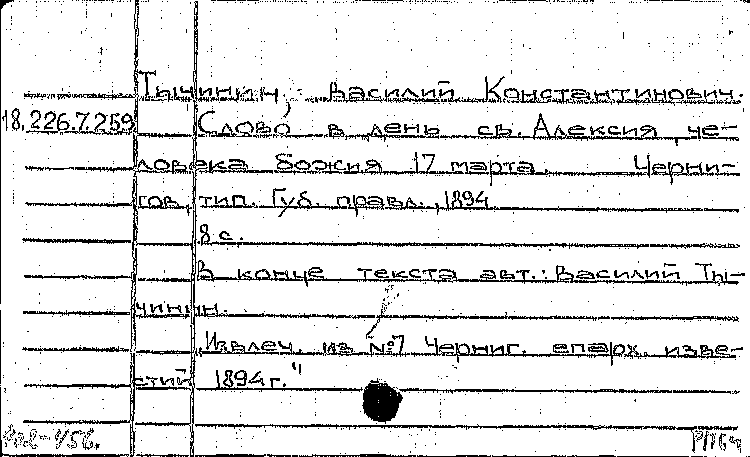 Тычинин, Василий Константинович.
18.226.7.259 Слово в день св. Алексия, че-
ловека божия 17 марта. Черни-
гов, тип. Губ. правл., 1894
8 с.
В конце текста авт.: Василий Ты-
чинин.
„Извлеч. из №7 Черниг. епарх. изве-
стий 1894 г."